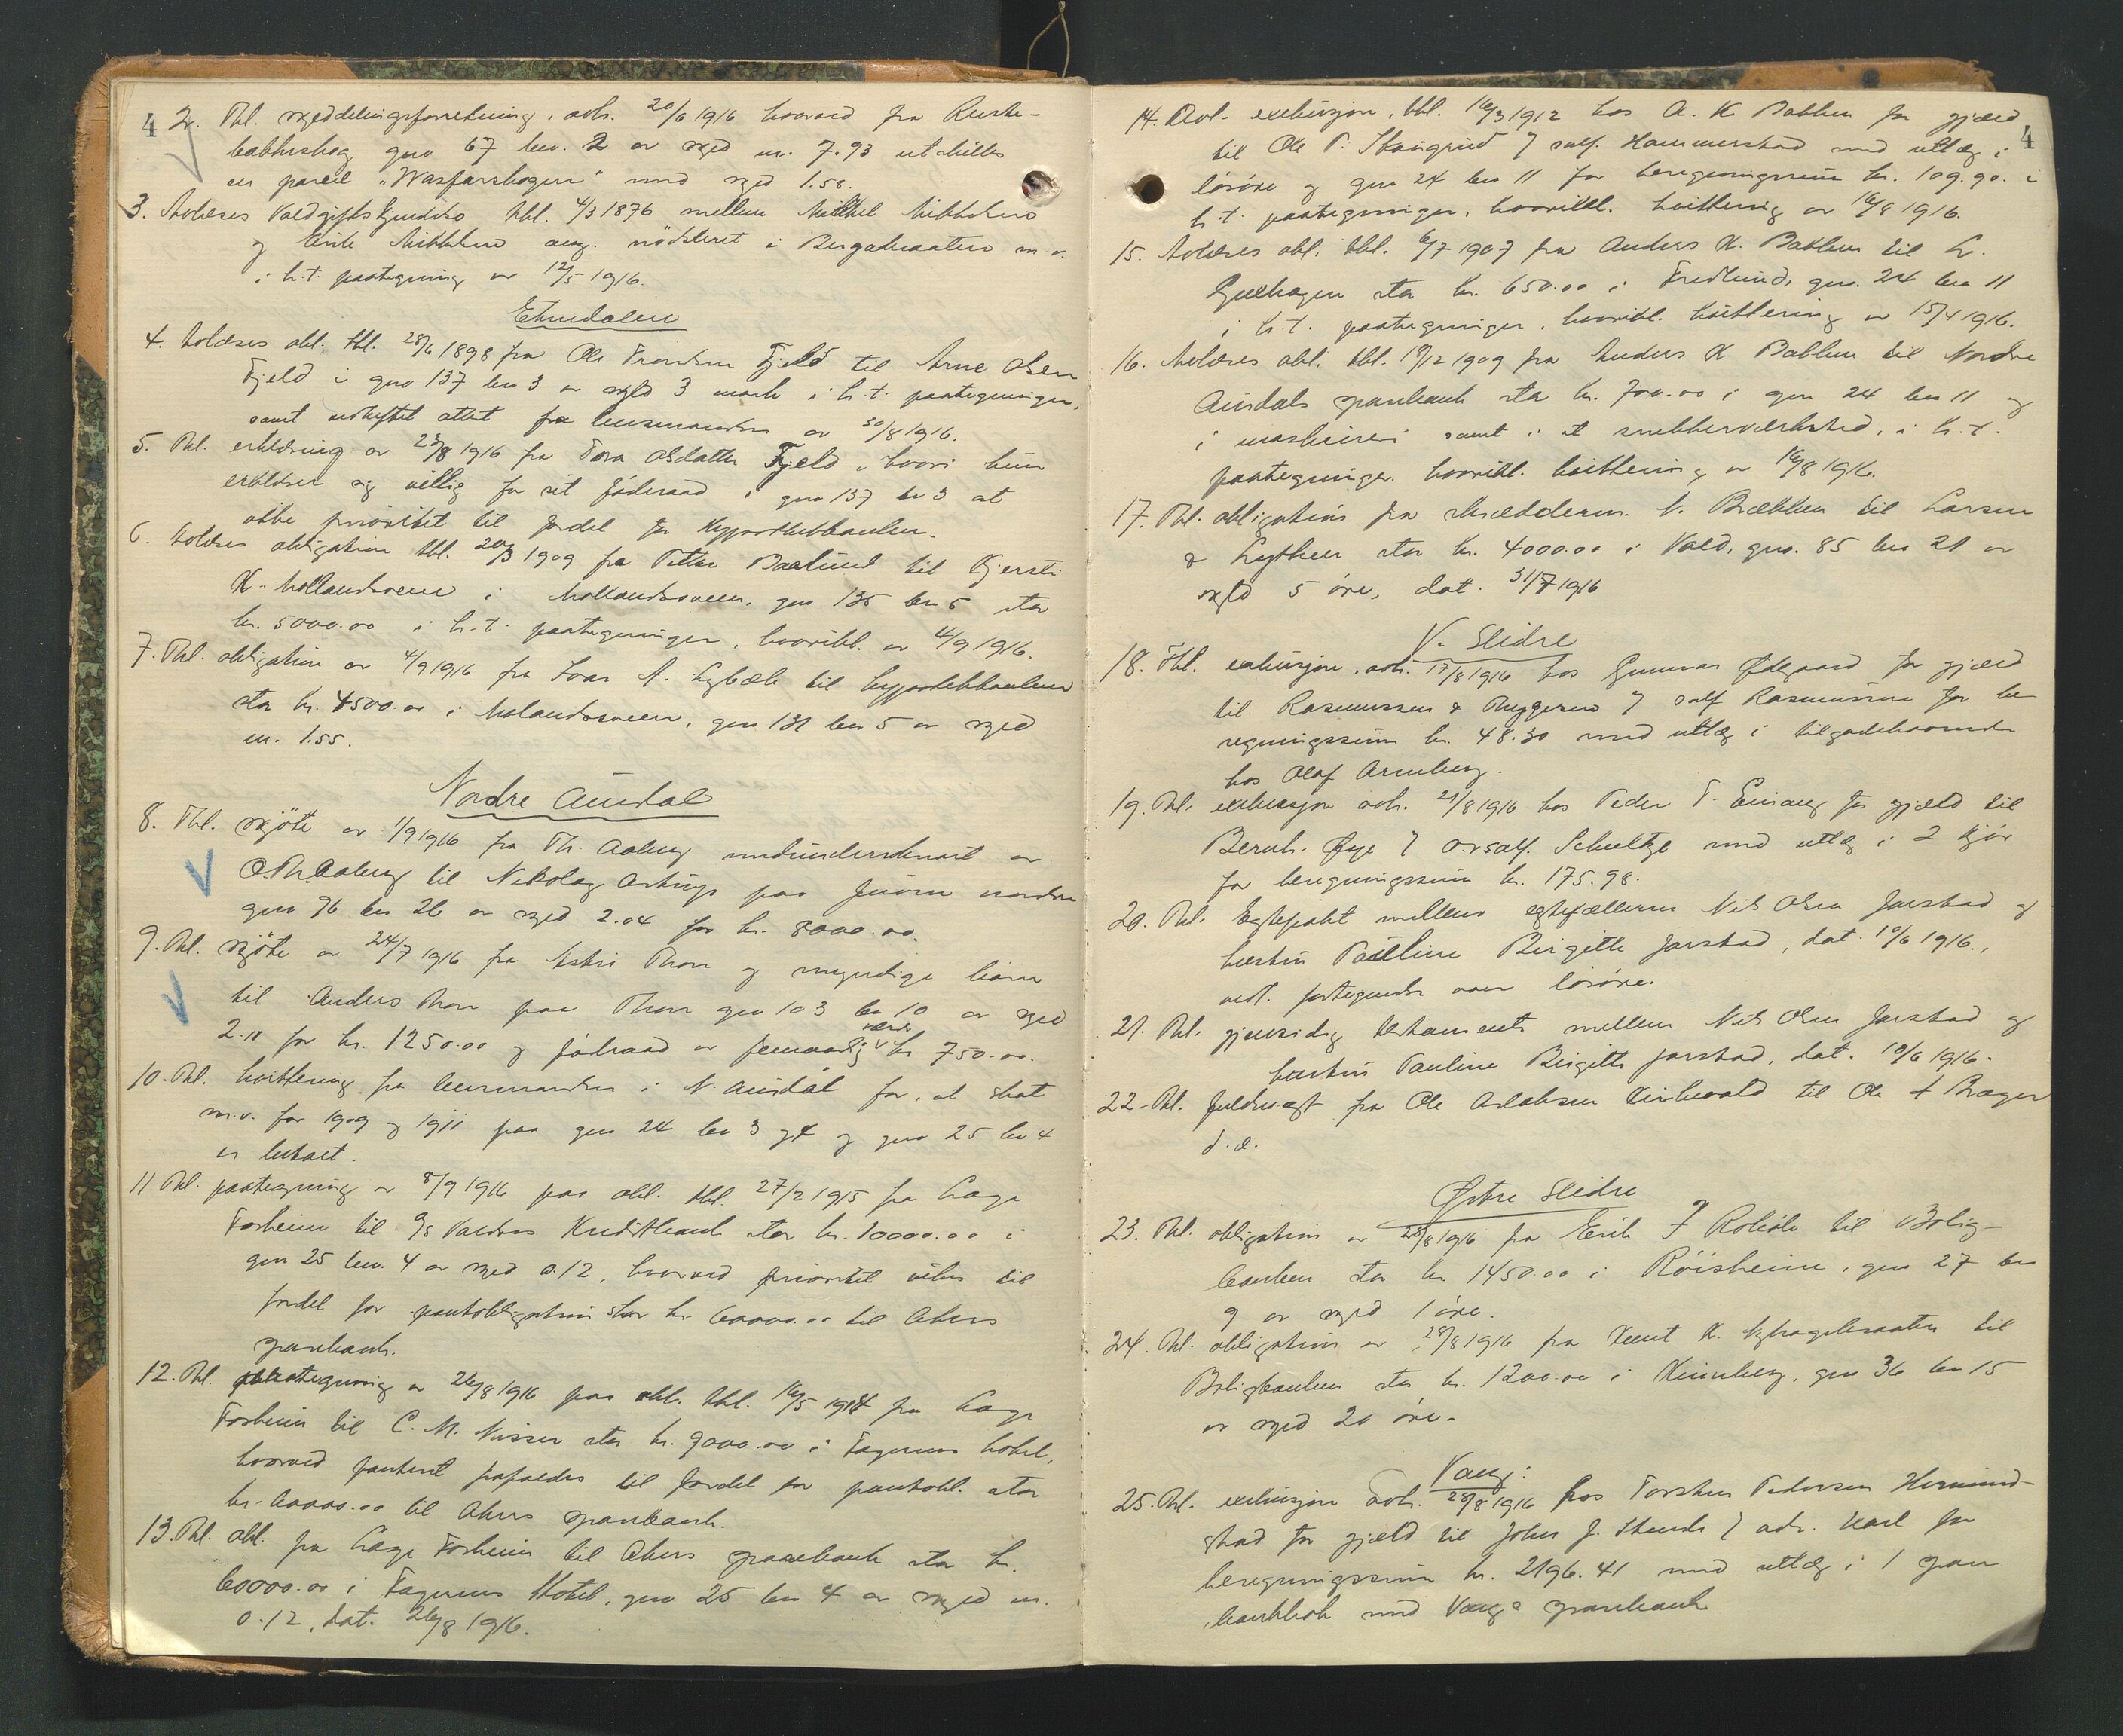 4 2. Thl. skylddelingsforretning, avh. 20/6 1916 hvorved fra Ruste-
bakkeskog gno 67 bno. 2 av skyld m. 7.93 utskilles
en parcel "Wasfarskogen" med skyld 1.58.
3. Avlæses Voldgiftskjendelse thl. 4/3 1876 mellem Mikkel Mikkelsen
og Erik Mikkelsen ang. i m.v.
i h.t. paategning av 12/5 1916.
Etnedalen
4. Avlæses obl. thl. 28/6 1898 fra Ole Trondsen Fjeld til Arne Olsen
Fjeld i gno 137 bno 3 av skyld 3 mark i h.t. paategninger,
samt vedheftet attest fra lensmanden av 30/8 1916.
5. Thl. erklæring av 23/8 1916 fra Tora Olsdatter Fjeld, hvori hun
erklærer sig villig for sit föderaad i gno 137 bno 3 at
vike prioritet til fordel for Hypothekbanken.
6. Avlæses obligation thl. 20/3 1909 fra Petter Baslund til Kjersti
K. Mollandsveen i Mollandsveen, gno 135 bno 5 stor
kr. 5000.00 i h.t. paategninger, hvoribl. av 4/9 1916.
7. Thl. obligation av 4/9 1916 fra Ivar A. Lybæk til hypothekbanken
stor kr. 4500.00 i Molandsveen, gno 131 bno 5 av skyld
m. 1.55.
Nordre Aurdal
8. Thl. skjöte av 1/9 1916 fra Th. Aaberg medunderskrevet av
O. Th. Aaberg til Nikolay Astrup paa nordre
gno 96 bno 26 av skyld 2.04 for kr. 8000.00.
9. Thl. skjöte av 24/7 1916 fra Astri Thon og myndige barn
til Anders Thon paa Thon gno 103 bno 10 av skyld
2.11 for kr. 1250.00 og föderaad av femaarlig værdi kr 750.00.
10. Thl. kvittering fra lensmanden i N. Aurdal for, at skat
m.v. for 1909 og 1911 paa gno 24 bno 3 og 4 og gno 25 bno 4
er betalt.
11 Thl. paategning av 8/9 1916 paa obl. thl. 27/2 1915 fra Lage
Forheim til A/S Valdres Kreditbank stor kr. 10000.00 i
gno 25 bno. 4 av skyld 0.12, hvorved prioritet vikes til
fordel for pantobligation stor kr. 60000.00 til Akers
sparebank.
12. Thl. paategning av 26/8 1916 paa obl. thl. 16/5 1914 fra Lage
Forheim til C. M. Nisser stor kr. 9000.00 i Fagernes hotel,
hvorved panteret frafaldes til fordel for pantobl. stor
kr. 60000.00 til Akers sparebank.
13. Thl. obl. fra Lage Forheim til Akers sparebank stor kr.
60000.00 i Fagernes Hotel, gno 25 bno 4 av skyld m.
0.12, dat. 26/8 1916.
4
14. Avl. exekusjon, thl. 16/3 1912 hos A. K Bakken for gjæld
til Ole P. v/ sakf. Hammerstad med utlæg i
lösöre og gno 24 bno 11 for beregningssum kr. 109.90. i
h.t. paategninger, hvoribl. kvittering av 16/8 1916.
15. Avlæses obl. thl. 6/7 1907 fra Anders K. Bakken til
stor kr. 650.00 i Fredlund, gno. 24 bno 11
i h.t. paategninger, hvoribl. kvittering av 15/4 1916.
16. Avlæses obl. thl. 12 1909 fra Anders K. Bakken til Nordre
Aurdals sparebank stor kr. 700.00 i gno 24 bno 11 og
i maskineri samt i et snekkerværksted, i h.t.
paategninger. hvoribl. kvittering av 16/8 1916.
17. Thl. obligation fra skrædderm. N. Brækken til Larsen
& Lythen stor kr. 4000.00 i Vold, gno. 85 bno 21 av
skyld 5 öre, dat. 31/7 1916
V. Slidre
18. Thl. exekusjon, avh. 17/8 1916 hos Gunnar Ødegaard for gjæld
til Rasmussen & v/ sakf Rasmussen for be
regningssum kr. 48.30 med utlæg i tilgodehavende
hos Olaf Arneberg.
19. Thl. exekusjon avh. 21/8 1916 hos Peder T. Einang for gjæld til
Bernh. Øye v/ o.r.sakf. Schultze med utlæg i 2 kjör
for beregningssum kr. 175.98.
20. Thl. Egtepakt mellem egtefællerne Nils Olsen Jarstad og
hustru Pauline Birgitte Jarstad, dat. 10/6 1916.,
vedl. fortegnelse over lösöre.
21. Thl. gjensidig testamente mellem Nils Olsen Jarstad og
hustru Pauline Birgitte Jarstad, dat. 10/6 1916.
22. Thl. fuldmagt fra Ole Aslaksen Kirkevold til Ole A Brager
d.æ.
Østre Slidre
23. Thl. obligation av 28/8 1916 fra Erik J Robøle til Bolig-
banken stor kr 1450.00 i Röisheim, gno 27 bno
9 av skyld 1 öre.
24. Thl. obligation av 28/8 1916 fra Knut K. til
Boligbanken stor kr. 1200.00 i Kinnberg, gno 36 bno 15
av skyld 20 öre.
Vang.
25. Thl. exekusjon avh. 28/8 1916 hos Torsten Pedersen Hermund-
stad for gjæld til John J. v/ adv. Karl for
beregningssum kr. 2196.41 med utlæg i 1 spare
bankbok med Vangs sparebank